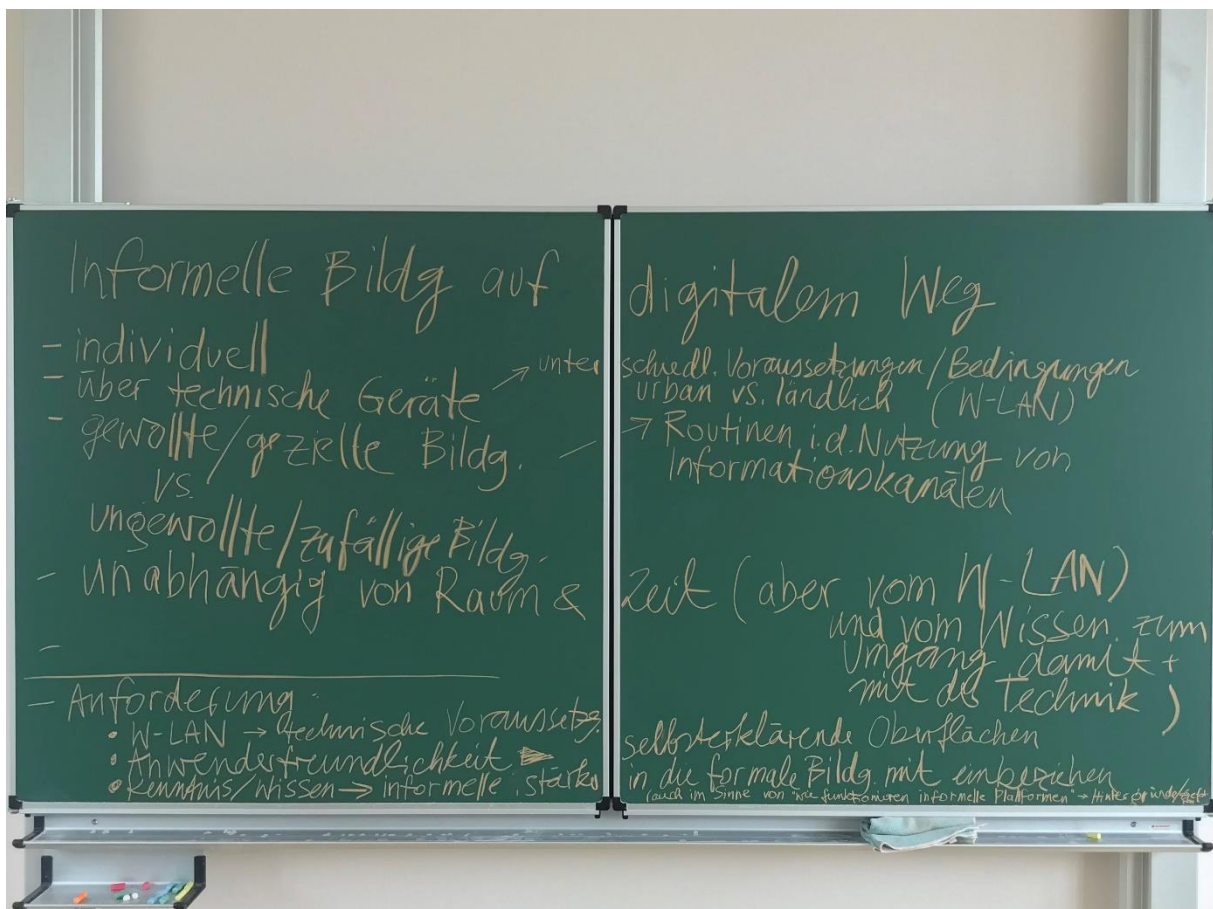 Informelle Bildg auf digitalem Weg
- individuell
- über technische Geräte → unterschiedl. Voraussetzungen/Bedingungen
urban vs. ländlich (W-LAN)
- gewollte/gezielte Bildg. → Routinen i.d. Nutzung von
Informationskanälen
vs.
ungewollte/zufällige Bildg.
- unabhängig von Raum & Zeit (aber vom W-LAN)
und vom Wissen zum
Umgang damit +
mit der Technik)
-
- Anforderung:
• W-LAN → technische Voraussetzg.
• Anwenderfreundlichkeit selbsterklärende Oberflächen
• Kenntnis/Wissen → informelle stärker in die formale Bildg. mit einbeziehen
(auch im Sinne von "wie funktionieren informelle Plattformen" →